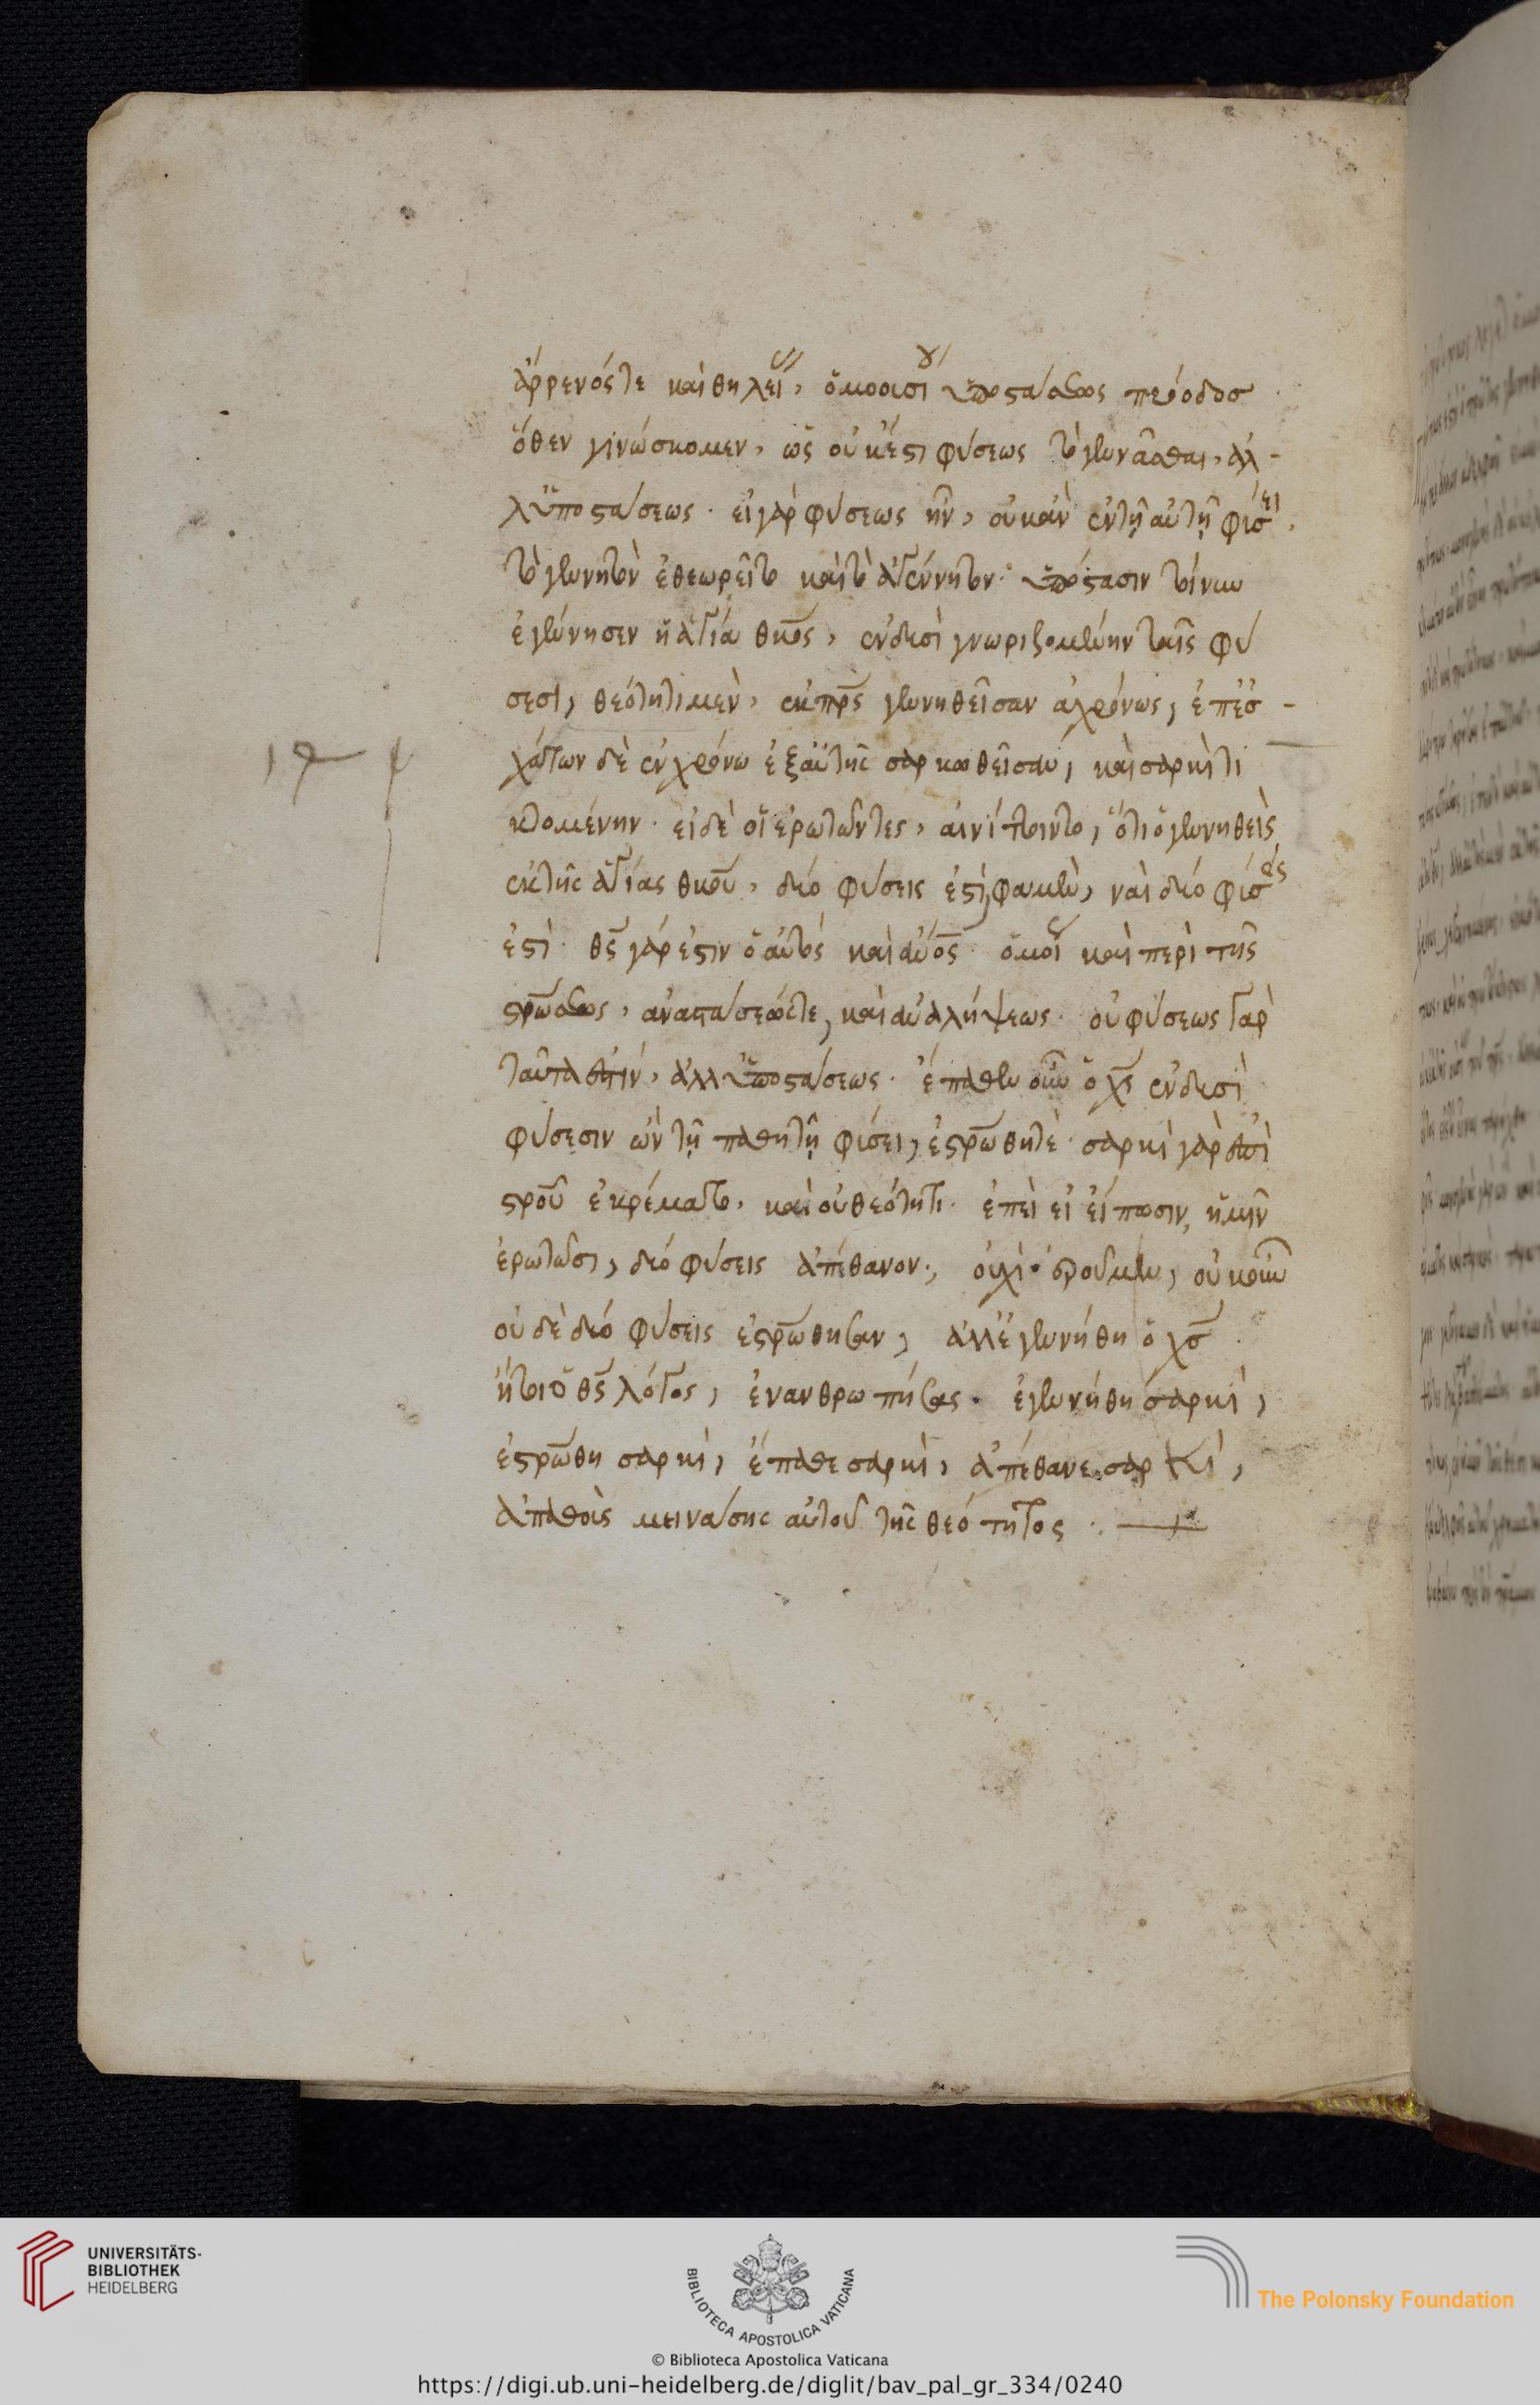 ἄρρενός τε καὶ θήλεος, ὁμοουσίου ὑποστάσεως πρόοδος.
ὅθεν γινώσκομεν, ὡς οὐκ ἔστι φύσεως τὸ γεννᾶσθαι, ἀλ-
λ' ὑποστάσεως. εἰ γὰρ φύσεως ἦν, οὐκ ἂν ἐν τῇ αὐτῇ φύσει,
τὸ γεννητὸν ἐθεωρεῖτο καὶ τὸ ἀγέννητον. ὑπόστασιν τοίνυν
ἐγέννησεν ἡ ἁγία θκος, ἐν δυσὶ γνωριζομένην ταῖς φύ
σεσι, θεότητι μὲν, ἐκ πρς γεννηθεῖσαν ἀχρόνως, ἐπ' ἐσ-
χάτων δὲ ἐν χρόνω ἐξ αὐτῆς σαρκωθεῖσαν, καὶ σαρκὶ τι
κτομένην. εἰ δὲ οἱ ἐρωτῶντες, αἰνίττοιντο, ὅτι ὁ γεννηθεὶς
ἐκ τῆς ἁγίας θκου, δύο φύσεις ἐστὶ, φαμὲν, ναὶ δύο φύσεις
ἐστί. θς γάρ ἐστιν ὁ αὐτός καὶ ανος. ὁμοίως καὶ περὶ τῆς
στρώσεως, ἀναστάσεώς τε, καὶ ἀναλήψεως. οὐ φύσεως γὰρ
ταῦτά ἐστιν, ἀλλ' ὑποστάσεως. ἔπαθεν οὖν ὁ χς ἐν δυσὶ
φύσεσιν ὢν τῇ παθητῇ φύσει, ἐστρώθη τε. σαρκὶ γὰρ ἐπὶ
στρου ἐκρέματο, καὶ οὐ θεότητι. ἐπεὶ εἰ εἴπωσιν, ἡμῖν
ἐρωτῶσι, δύο φύσεις ἀπέθανον., οὐχὶ ἐροῦμεν, οὐκοῦν
οὐδὲ δύο φύσεις ἐστρώθησαν, ἀλλ' ἐγεννήθη ὁ χς.
ἤτοι ὁ θς λόγος, ἐνανθρωπήσας. ἐγεννήθη σαρκὶ,
ἐστρώθη σαρκὶ, ἔπαθε σαρκὶ, ἀπέθανε σαρκὶ,
ἀπαθοῦς μεινάσης αὐτοῦ τῆς θεότητος.
UNIVERSITÄTS-
BIBLIOTHEK
HEIDELBERG
BIBLIOTECA APOSTOLICA VATICANA
The Polonsky Foundation
© Biblioteca Apostolica Vaticana
https://digi.ub.uni-heidelberg.de/diglit/bav_pal_gr_334/0240